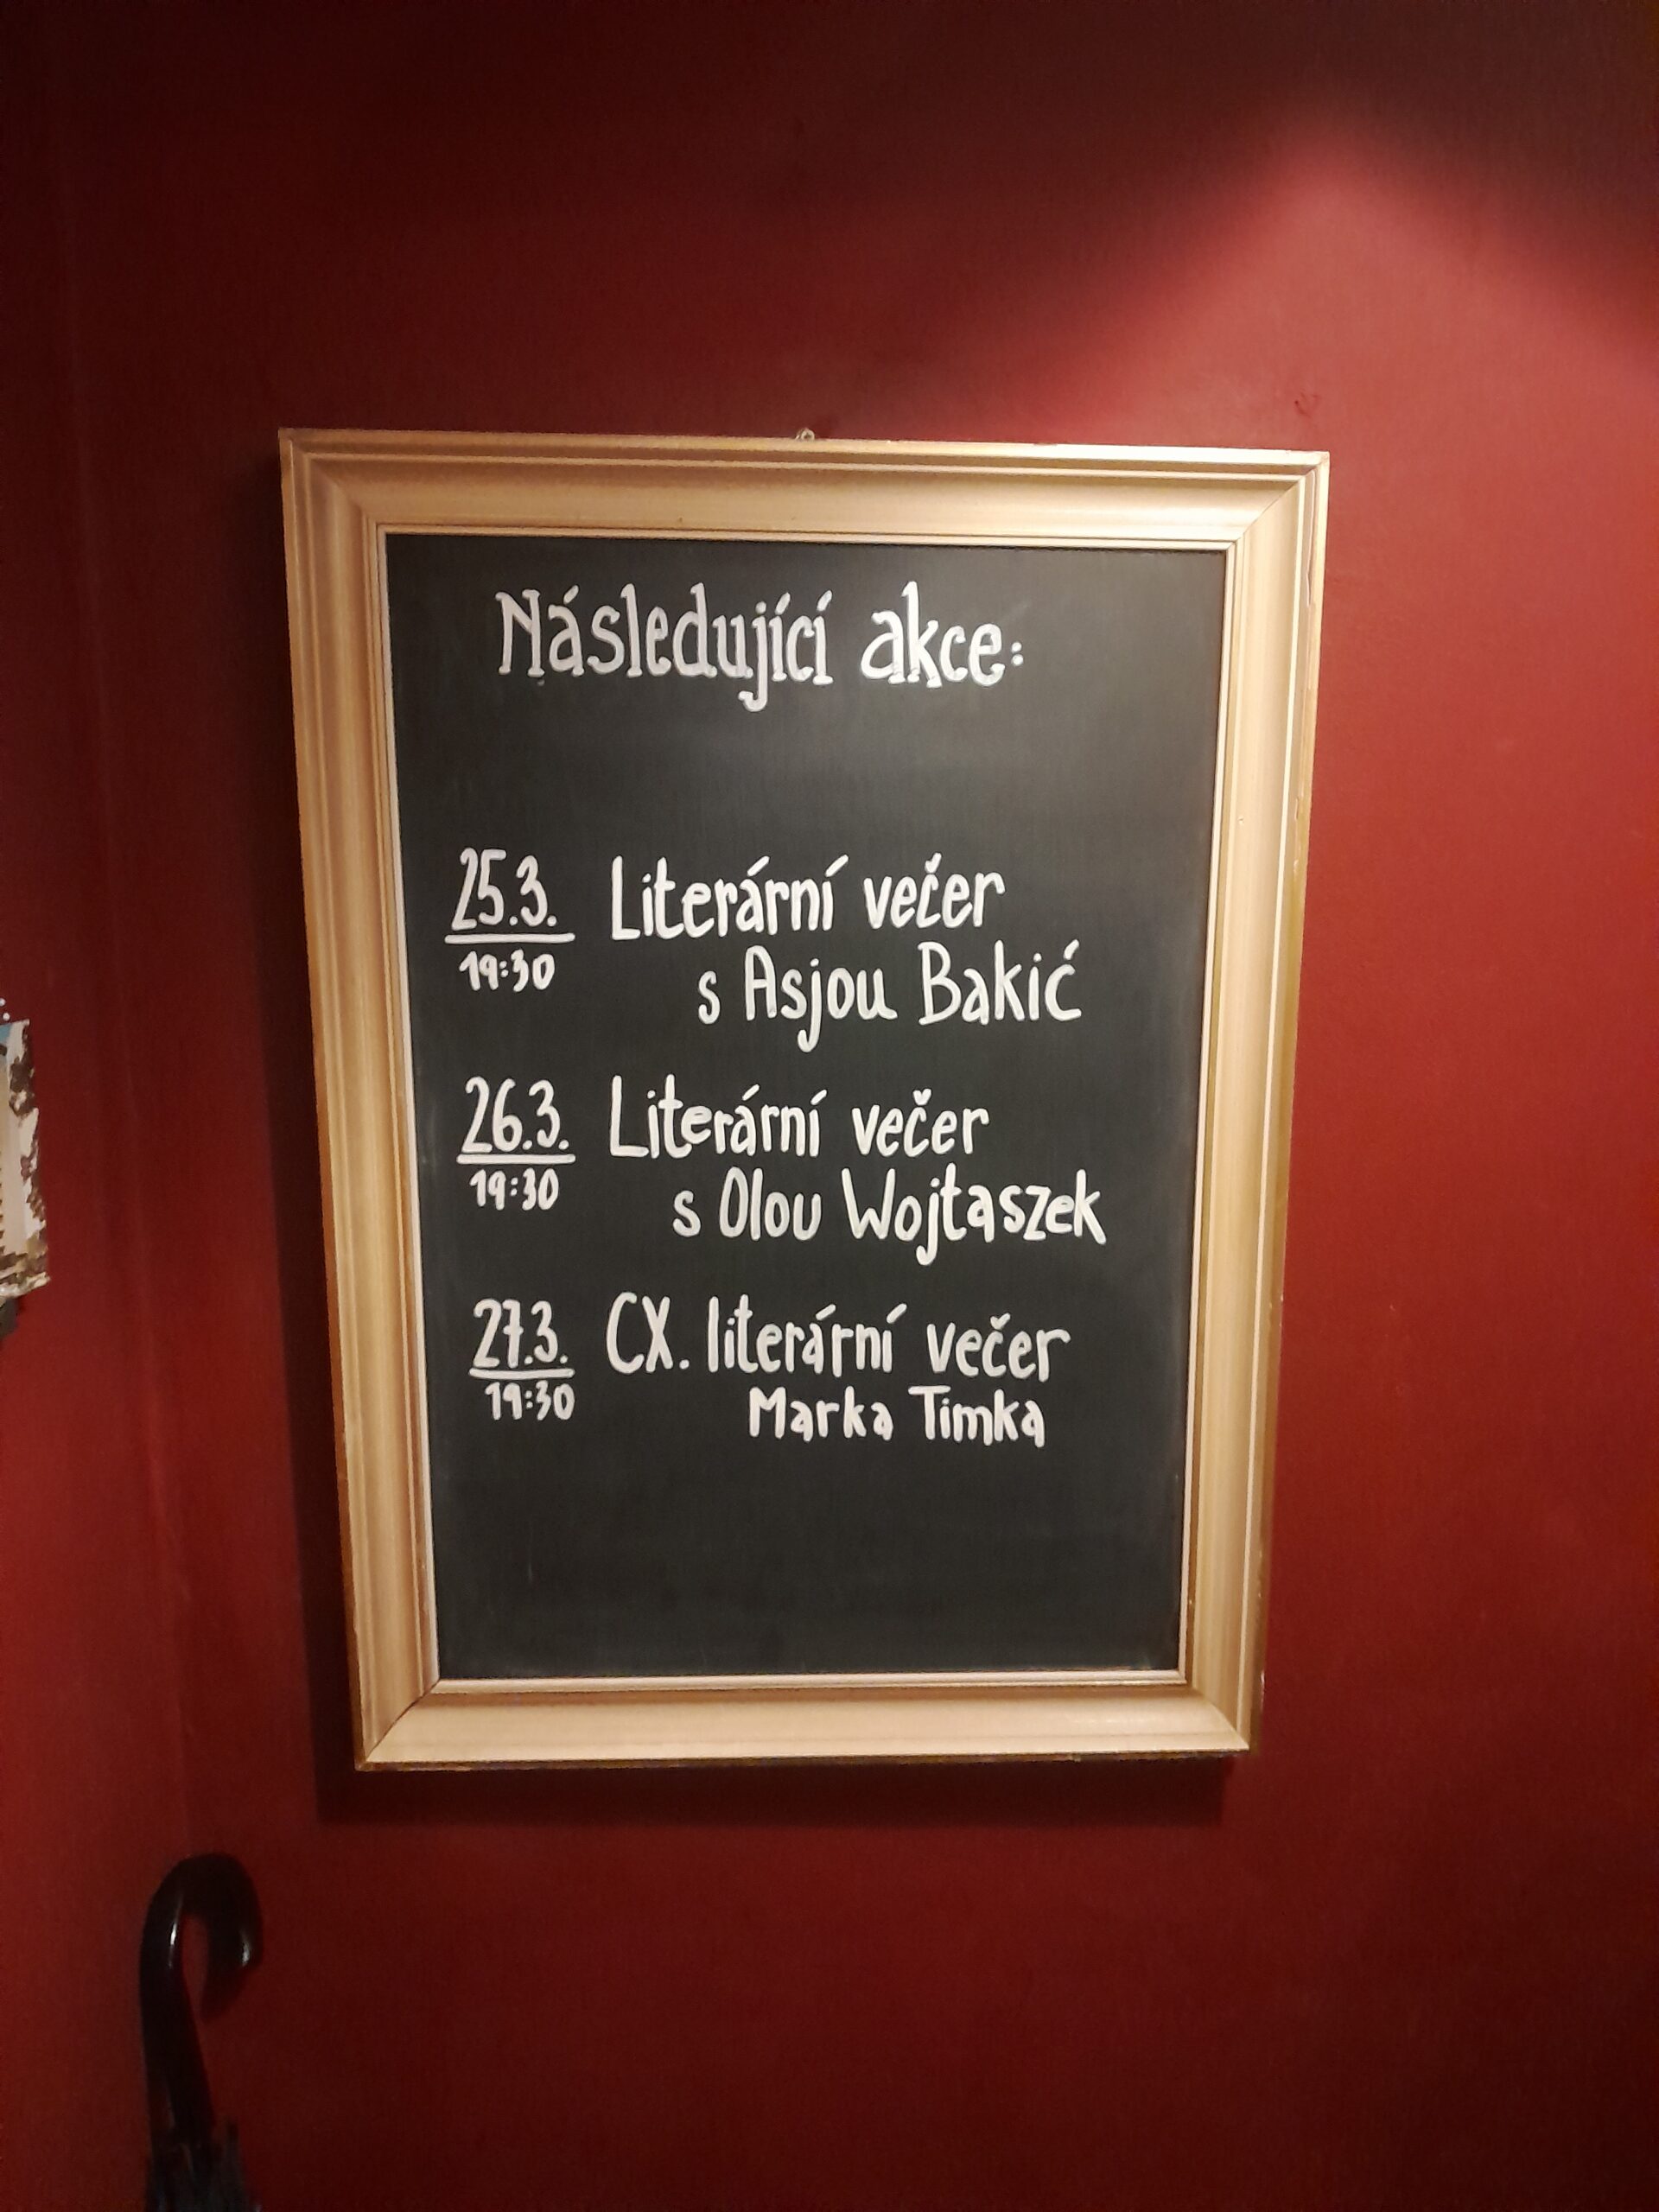 Následující akce:
25.3. Literární večer
19:30 s Asjou Bakić
26.3. Literární večer
19:30 s Olou Wojtaszek
27.3. CX. literární večer
19:30 Marka Timka